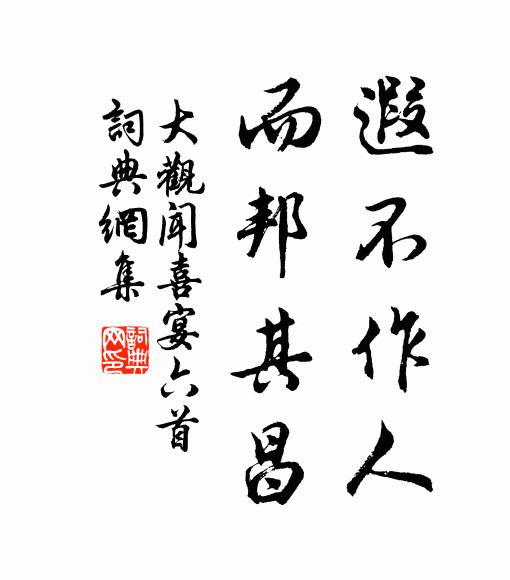 遐不作人
而邦其昌
大觀聞喜宴六首
詞典網集
詞典网印